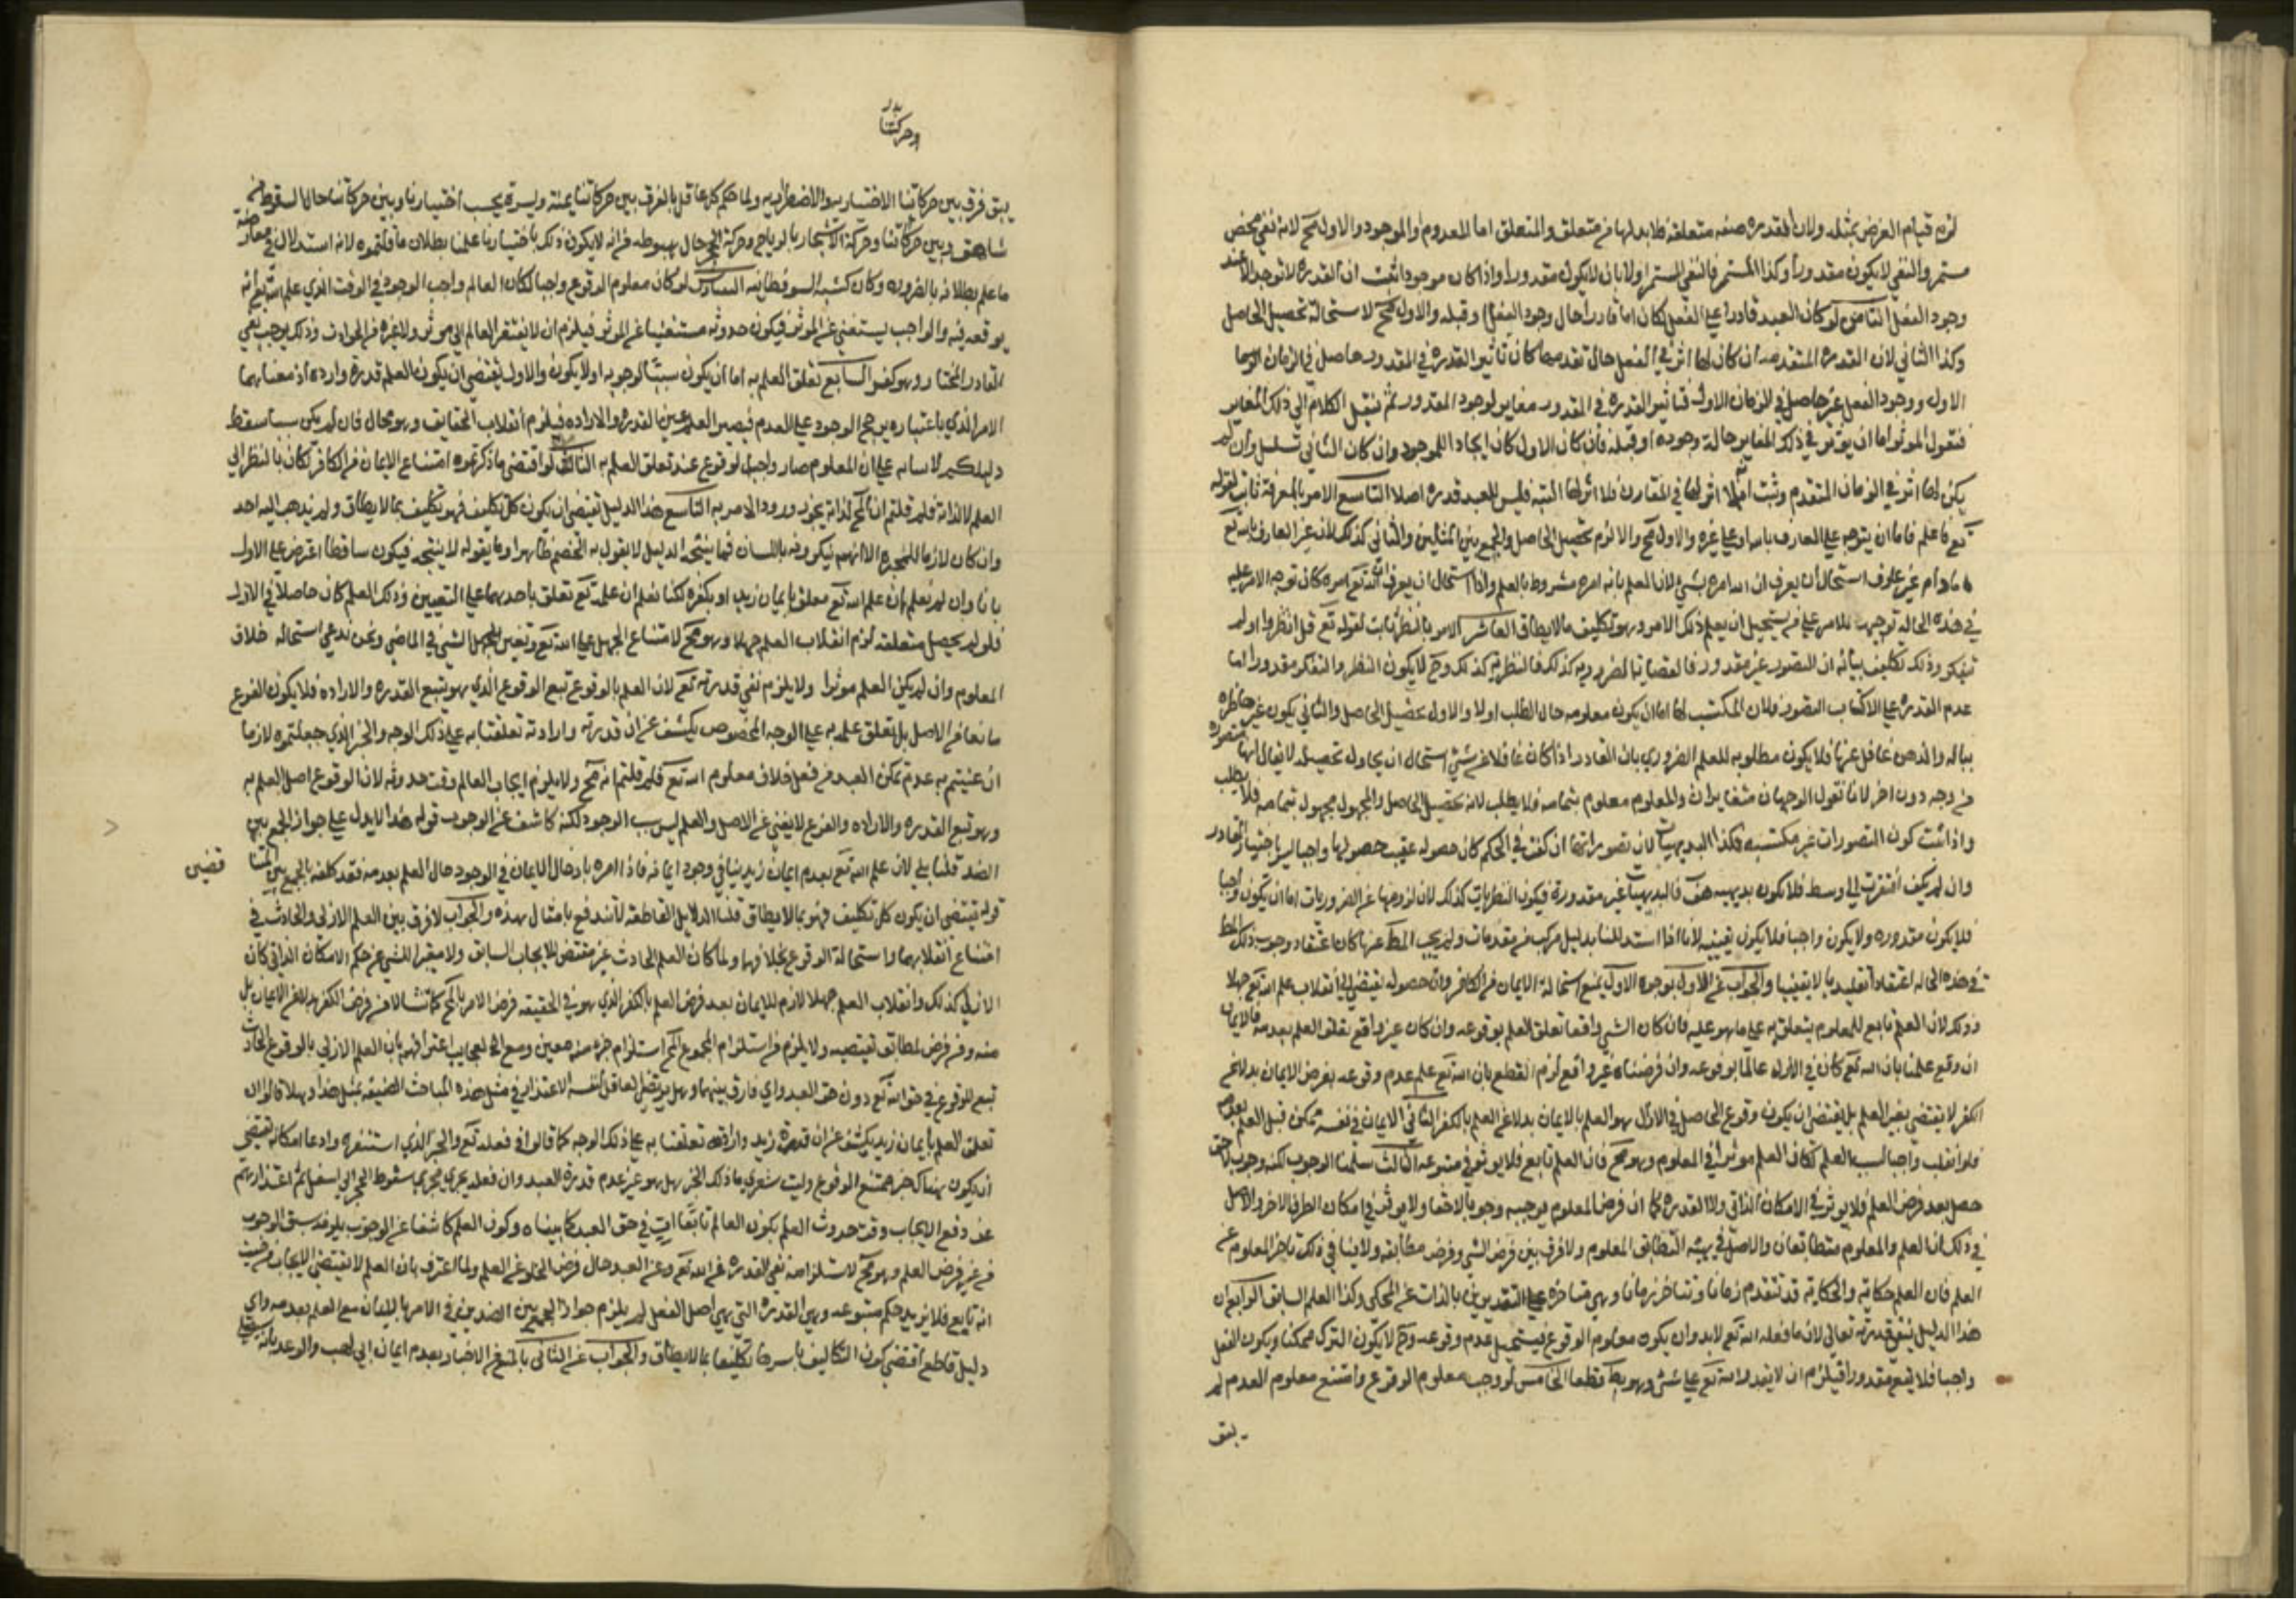 لزم قيام العرض بمثله ولان القدرة صفة متعلقة فلا بد لها من متعلق والمتعلق اما المعدوم او الموجود والاول مح لانه نفي محض
مستمر والنفي لا يكون مقدورا وكذا المستمر فالنفي المستمر اولى بان لا يكون مقدورا واذا كان موجودا ثبت ان القدرة لا توجد الا عند
وجود الفعل الثامن لو كان العبد قادرا على الفعل لكان اما قادرا حال وجود الفعل او قبله والاول مح لاستحالة تحصيل الحاصل
وكذا الثاني لان القدرة المتقدمة ان كان لها اثر في الفعل حال تقدمها كان تاثير القدرة في المقدور حاصل في الزمان
الاول ووجود الفعل غير حاصل في الزمان الاول فتاثير القدرة في المقدور مغاير لوجود المقدور ثم ننقل الكلام الى ذلك المغاير
فنقول الموثر اما ان يوثر في ذلك المغاير حالة وجوده او قبله فان كان الاول كان ايجادا للموجود وان كان الثاني تسلسل وان لم
يكن لها اثر في الزمان المتقدم وثبت انه لا اثر لها في المقارن فلا اثر لها البتة فليس للعبد قدرة اصلا التاسع الامر بالمعرفة ثابت لقوله
تع فاعلم فاما ان يتوجه على العارف بالله او على غيره والاول مح والا لزم تحصيل الحاصل والجمع بين المثلين والثاني كذلك لان غير العارف بالله تع
ما دام غير عارف استحال ان يعرف ان الله امره بشي لان العلم بانه امره مشروط بالعلم واذا استحال ان يعرف ان الله تع امره كان توجه الامر عليه
في هذه الحالة توجيها للامر على من يستحيل ان يعلم ذلك الامر وهو تكليف ما لا يطاق العاشر الامر بالنظر ثابت لقوله تع قل انظروا اولم
تيفكروا وذلك تكليف بيانه ان التصور غير مقدور فالقضايا الضرورية كذلك فالنظرية كذلك وح لا يكون النظر والتفكر مقدورا اما
عدم القدرة على الاكتساب التصور فلان المكتسب لها اما ان يكون معلومه حال الطلب اولا والاول تحصيل الحاصل والثاني يكون غير خاطرة
بباله والذهن غافل عنها فلا يكون مطلوبه للعلم الضروري بان القادر اذا كان غافلا عن شي استحال ان يحاول تحصيله لا يقال انها متصورة
من وجه دون اخر لانا نقول الوجهان متغايران والمعلوم معلوم بتمامه فلا يطلب لانه تحصيل الحاصل والمجهول مجهول بتمامه فلا يطلب
واذا ثبت كون التصورات غير مكتسبه فكذا البديهيات لان تصوراتها ان كفت في الحكم كان حصوله عقيب حصولها واجبا ليس باختيار القادر
وان لم يكف افتقرت الى وسط فلا يكون بديهيه هف فالبديهيات غير مقدورة فيكون النظريات كذلك لان لزومها عن الضروريات اما ان يكون واجبا
فلا يكون مقدوره ولا يكون واجبا فلا يكون يقينيه لانا اذا استدللنا بدليل مركب من مقدمات ولم يجب المط عنها كان اعتقاد وجوب ذلك المط
في هذه الحاله اعتقادا تقليديا لا يقينيا والجواب عن الاول بوجوه الاول يمنع استحالة الايمان من الكافر وان حصوله يقتضي انقلاب علم الله تع جهلا
وذلك لان العلم تابع للمعلوم يتعلق به على ما هو عليه فان كان الشي واقعا تعلق العلم بوقوعه وان كان غير واقع تعلق العلم بعدمه فالايمان
ان وقع علمنا بان الله تع كان في الازل عالما بوقوعه وان فرضناه غير واقع لزم القطع بان الله تع علم عدم وقوعه بفرض الايمان بدلا عن
الكفر لا يقتضي تغير العلم بل يقتضي ان يكون وقوع الحاصل في الازل هو العلم بالايمان بدلا عن العلم بالكفر الثاني الايمان في نفسه ممكن قبل العلم بعدم
فلو انقلب واجبا لسبب العلم لكان العلم موثرا في المعلوم وهو مح فان العلم تابع فلا يوثر في متبوعه الثالث سلمنا الوجوب لكنه وجوب لاحق
حصل بعد فرض العلم فلا يوثر في الامكان الذاتي ولا القدرة كما ان فرض المعلوم يوجبه وجوبا لاحقا ولا يوثر في امكان الطرف الاخر والاصل
في ذلك ان العلم والمعلوم متطابقان والاصل في هيئة التطابق المعلوم ولا فرق بين فرض الشي وفرض مطابقه ولا ينافي ذلك تاخر المعلوم عن
العلم فان العلم حكاية والحكاية قد تتقدم زمانا وتتاخر زمانا وهي متاخرة على التقديرين بالذات عن المحكي وكذا العلم السابق الرابع ان
هذا الدليل ينفي قدرته تعالى لان ما فعله الله تع لا بد وان يكون معلوم الوقوع فيستحيل عدم وقوعه وح لا يكون الترك ممكنا ويكون الفعل
واجبا فلا يقع مقدورا فيلزم ان لا يقدر الله تع على شي وهو بط قطعا الخامس لو وجب معلوم الوقوع وامتنع معلوم العدم لم
يبق
يبق فرق بين حركاتنا الاختياريه والاضطراريه ولما حكم كل عاقل بالفرق بين حركاتنا يمنة ويسرة بحسب اختيارنا وبين حركاتنا حال السقوط من
شاهق وبين حركاتنا وحركة الاشجار بالرياح وحركة الحجر حال هبوطه فانه لا يكون ذلك باختيارنا علمنا بطلان ما قلتموه لانه استدلال في معارضة
ما علم بطلانه بالضرورة وكان كشبه السوفسطائيه السادس لو كان معلوم الوقوع واجبا لكان العالم واجب الوجود في الوقت الذي علم الله تع انه
يوقعه فيه والواجب يستغني عن الموثر فيكون حدوثه مستغنيا عن الموثر فيلزم ان لا يفتقر العالم الى موثر ولا غيره من الحوادث وذلك يوجب نفي
القادر المختار وهو كفر السابع تعلق العلم به اما ان يكون سببا لوجوبه اولا يكون والاول يقتضي ان يكون العلم قدرة وارادة اذ معناهما
الامر الذي باعتباره يرجح الوجود على العدم فيصير العلم عين القدرة والاراده فيلزم انقلاب الحقايق وهو محال فان لم يكن سببا سقط
دليلكم لاسايه على ان المعلوم صار واجب الوقوع عند تعلق العلم به الثامن لو اقتضى ما ذكرتموه امتناع الايمان من الكافر لكان بالنظر الى
العلم لا لذاته فلم قلتم ان المح لذاته يجوز ورود الامر به التاسع هذا الدليل يقتضي ان يكون كل تكليف فهو تكليف بما لا يطاق ولم يذهب اليه احد
وان كان لازما للمجبره الا انهم ينكرونه باللسان فما ينتجه الدليل لا يقول به الخصم ظاهرا وما يقوله لا ينتجه فيكون ساقطا اعترض على الاول
بانا وان لم نعلم ان علم الله تع معلق بايمان زيد او بكفره لكنا نعلم ان علمه تع تعلق باحدهما على التعيين وذلك العلم كان حاصلا في الازل
فلو لم يحصل متعلقه لزم انقلاب العلم جهلا وهو مح لامتناع الجهل على الله تع وتعين الجهل الشي في الماضي ونحن ندعي استحاله خلاف
المعلوم وان لم يكن العلم موثرا ولا يلزم نفي قدرته تع لان العلم بالوقوع تبع الوقوع الذي هو يتبع القدرة والاراده فلا يكون الفرع
مانعا من الاصل بل تعلق علمه به على الوجه المخصوص يكشف عن ان قدرته وارادته تعلقتا به على ذلك الوجه والخبر الذي جعلتموه لازما
ان عنيتم به عدم تمكن العبد من فعل خلاف معلوم الله تع فلم قلتم انه مح ولا يلزم ايجاب العالم وقت حدوثه لان الوقوع اصل العلم به
وهو تبع القدرة والاراده والفرع لا يغني عن الاصل والعلم ليس سبب الوجود لكنه كاشف عن الوجوب قوله هذا لا يدل على جواز الجمع بين
الضد قلنا بلى لان علم الله تع بعدم ايمان زيد ينافي وجود ايمانه فاذا امره بادخال الايمان في الوجود حال العلم بعدمه فقد كلفه بالجمع بين المتنا
قضين
قوله يقتضي ان يكون كل تكليف فهو بما لا يطاق قلنا الدلايل القاطعة لا تندفع بامثال هذه والجواب لا فرق بين العلم الازلي والحادث في
امتناع انقلابهما واستحالة الوقوع بخلافهما ولما كان العلم الحادث غير مقتض للايجاب السابق ولا مغيرا للشي عن حكم الامكان الذاتي كان
الازلي كذلك وانقلاب العلم جهلا لازم للايمان بعد فرض العلم بالكفر الذي هو في الحقيقه فرض الامر بالحكم لا من فرض الكفر بدلا عن الايمان بل
منه ومن فرض لمطابق نقيضيه ولا يلزم من استلزام المجموع المح استلزام جزء منه معين ومع اني لمعجب اعترافهم بان العلم الازلي بالوقوع الحادث
تبع للوقوع في حق الله تع دون حق العبد واي فارق بينهما وهل يرتضي العاقل لنفسه الاعتذار في مثل هذه المباحث الضيقه بمثل هذا وهلا قالوا ان
تعلق العلم بايمان زيد يكشف عن ان قدرة زيد وارادته تعلقتا به على ذلك الوجه كما قالوا في فعله تع والخبر الذي استنفره وادعا امكانه يقتضي
ان يكون هناك خبر ممتنع الوقوع وليت شعري ما ذلك الخبر هل هو غير عدم قدرة العبد وان فعله يجري مجرى سقوط الحجر الى اسفل ثم اعتذارهم
عن دفع الايجاب وقت حدوث العلم بكون العالم تابعا ات في حق العبد كما بيناه وكون العلم كاشفا عن الوجوب يلزمه سبق الوجوب
من غير فرض العلم وهو مح لاستلزامه نفي القدرة عن الله تع وعن العبد حال فرض الخلو عن العلم ولما اعترف بان العلم لا يقتضي الايجاب من حيث
انه تابع فلا يزيد حكم متبوعه وهي القدرة التي هي اصل الفعل لم يلزم جواز الجمع بين الضدين في الامر بالايمان مع العلم بعدمه واي
دليل قاطع اقتضى كون التكاليف باسرها تكليفا بما لا يطاق والجواب عن الثاني بالمنع عن الاخبار بعدم ايمان ابي لهب والوعد بانه سيصلى